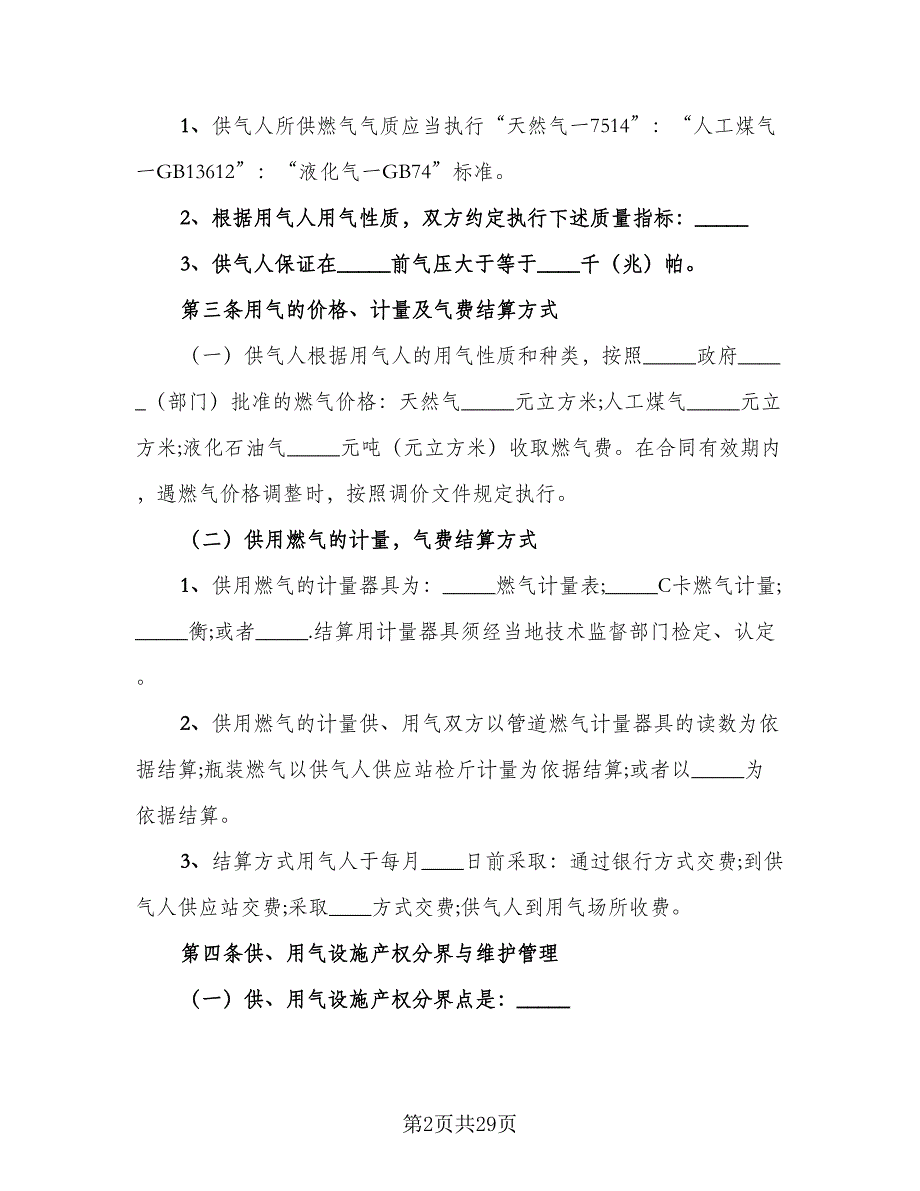 1、供气人所供燃气气质应当执行“天然气一7514”：“人工煤气
一GB13612”：“液化气一GB74”标准。
2、根据用气人用气性质，双方约定执行下述质量指标：_____
3、供气人保证在_____前气压大于等于____千（兆）帕。
第三条用气的价格、计量及气费结算方式
（一）供气人根据用气人的用气性质和种类，按照_____政府____
_（部门）批准的燃气价格：天然气_____元立方米;人工煤气_____元立
方米;液化石油气_____元吨（元立方米）收取燃气费。在合同有效期内
，遇燃气价格调整时，按照调价文件规定执行。
（二）供用燃气的计量，气费结算方式
1、供用燃气的计量器具为：_____燃气计量表;_____C卡燃气计量;
_____衡;或者_____.结算用计量器具须经当地技术监督部门检定、认定
。
2、供用燃气的计量供、用气双方以管道燃气计量器具的读数为依
据结算;瓶装燃气以供气人供应站检斤计量为依据结算;或者以_____为
依据结算。
3、结算方式用气人于每月____日前采取：通过银行方式交费;到供
气人供应站交费;采取____方式交费;供气人到用气场所收费。
第四条供、用气设施产权分界与维护管理
（一）供、用气设施产权分界点是：_____
第2页共29页